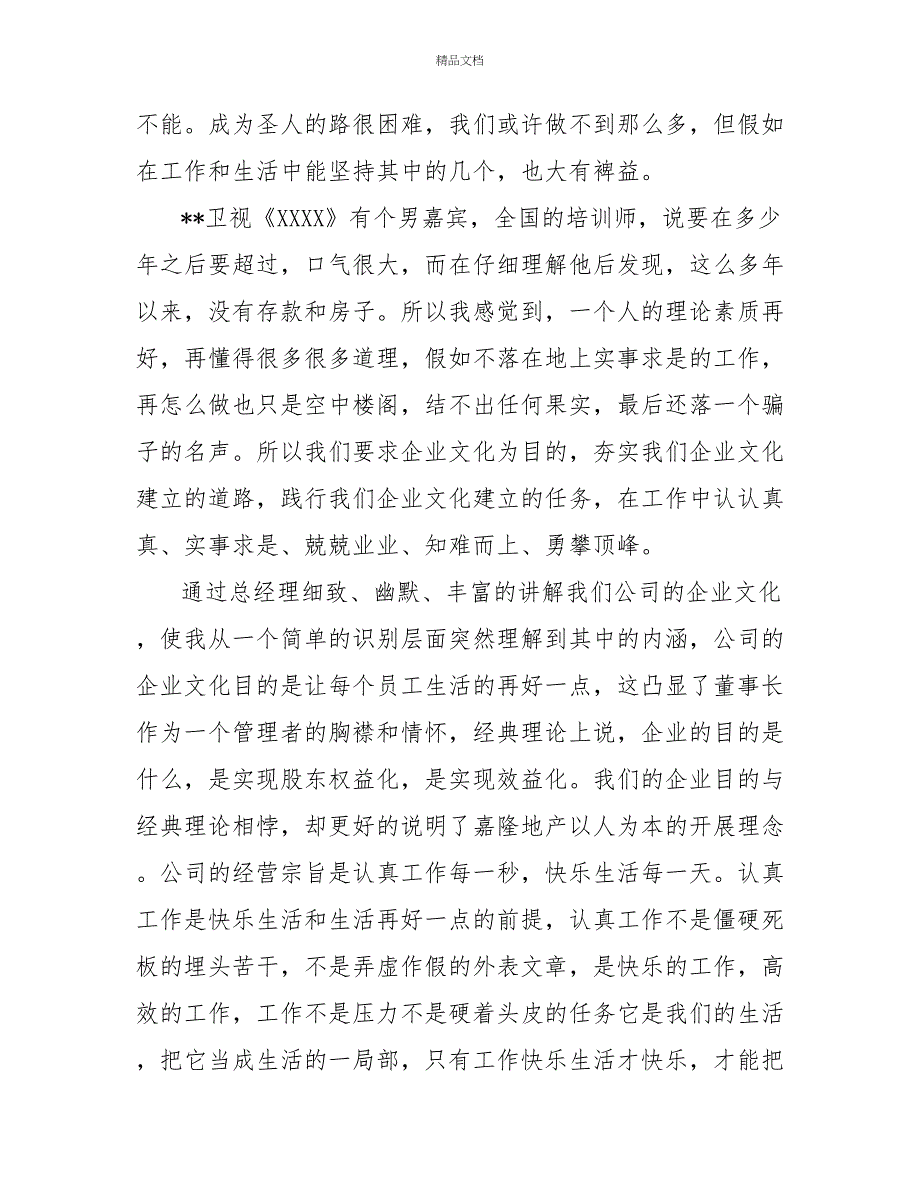 精品文档
不能。成为圣人的路很困难，我们或许做不到那么多，但假如
在工作和生活中能坚持其中的几个，也大有裨益。
**卫视《XXXX》有个男嘉宾，全国的培训师，说要在多少
年之后要超过，口气很大，而在仔细理解他后发现，这么多年
以来，没有存款和房子。所以我感觉到，一个人的理论素质再
好，再懂得很多很多道理，假如不落在地上实事求是的工作，
再怎么做也只是空中楼阁，结不出任何果实，最后还落一个骗
子的名声。所以我们要求企业文化为目的，夯实我们企业文化
建立的道路，践行我们企业文化建立的任务，在工作中认认真
真、实事求是、兢兢业业、知难而上、勇攀顶峰。
通过总经理细致、幽默、丰富的讲解我们公司的企业文化
，使我从一个简单的识别层面突然理解到其中的内涵，公司的
企业文化目的是让每个员工生活的再好一点，这凸显了董事长
作为一个管理者的胸襟和情怀，经典理论上说，企业的目的是
什么，是实现股东权益化，是实现效益化。我们的企业目的与
经典理论相悖，却更好的说明了嘉隆地产以人为本的开展理念
。公司的经营宗旨是认真工作每一秒，快乐生活每一天。认真
工作是快乐生活和生活再好一点的前提，认真工作不是僵硬死
板的埋头苦干，不是弄虚作假的外表文章，是快乐的工作，高
效的工作，工作不是压力不是硬着头皮的任务它是我们的生活
，把它当成生活的一局部，只有工作快乐生活才快乐，才能把